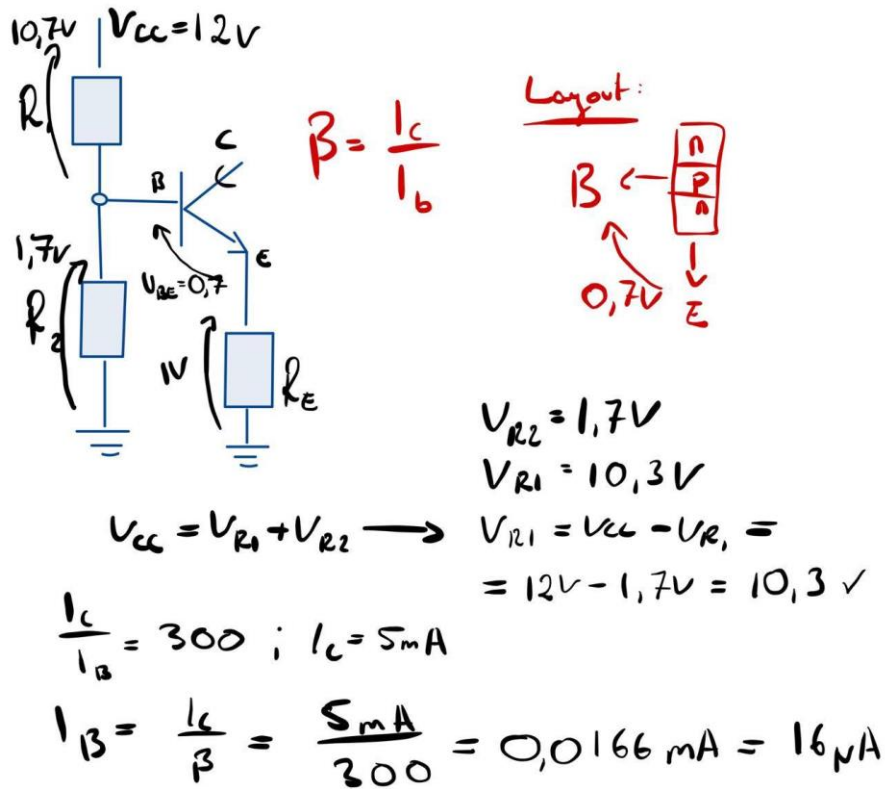 10,7V VCC=12V
R1
C
B
E
1,7V
UBE=0,7
R2
1V
RE
β = Ic / Ib
Layout:
n
p
n
B
0,7V
E
VR2 = 1,7V
VR1 = 10,3V
Vcc = VR1 + VR2 → VR1 = Vcc - VR1 =
= 12V - 1,7V = 10,3 ✓
Ic / IB = 300 ; Ic = 5mA
IB = Ic / β = 5mA / 300 = 0,0166 mA = 16µA